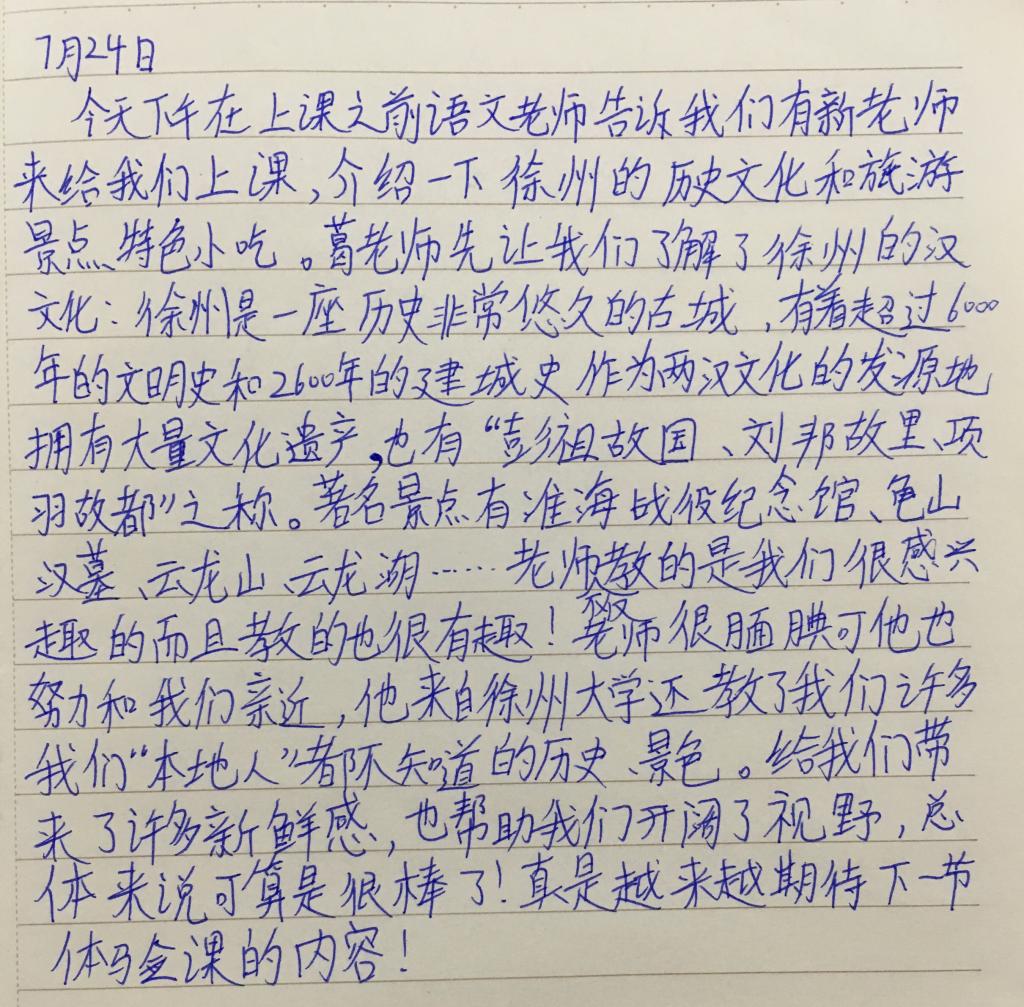 7月24日
今天下午在上课之前语文老师告诉我们有新老师
来给我们上课,介绍一下徐州的历史文化和旅游
景点、特色小吃。葛老师先让我们了解了徐州的汉
文化:徐州是一座历史非常悠久的古城,有着超过6000
年的文明史和2600年的建城史作为两汉文化的发源地
拥有大量文化遗产,也有“彭祖故国、刘邦故里、项
羽故都”之称。著名景点有淮海战役纪念馆、龟山
汉墓、云龙山、云龙湖……老师教的是我们很感兴
趣的而且教的也很有趣!老师很腼腆可他也
努力和我们亲近,他来自徐州大学还教了我们许多
我们“本地人”都不知道的历史、景色。给我们带
来了许多新鲜感,也帮助我们开阔了视野,总
体来说可算是很棒了!真是越来越期待下一节
体验课的内容!